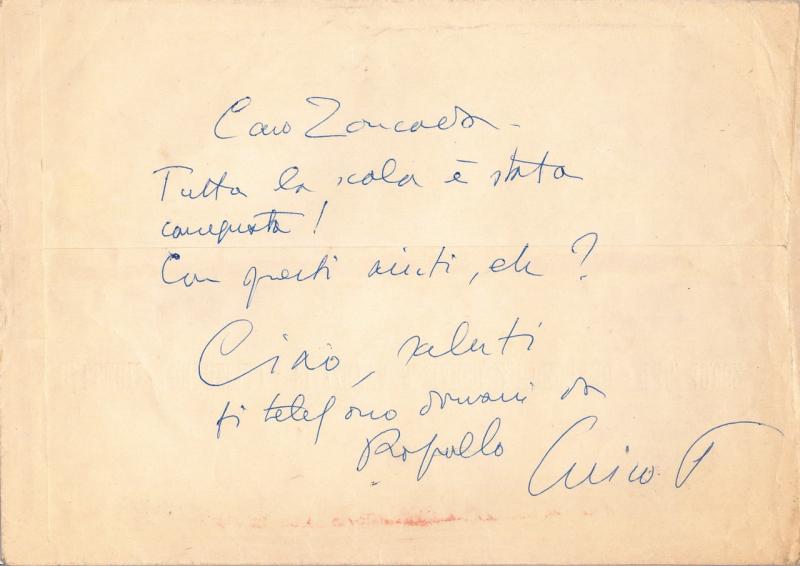 Caro Zoncada -
Tutta la scala è stata
conquista!
Con questi aiuti, eh?
Ciao, saluti
ti telefono domani da
Rapallo